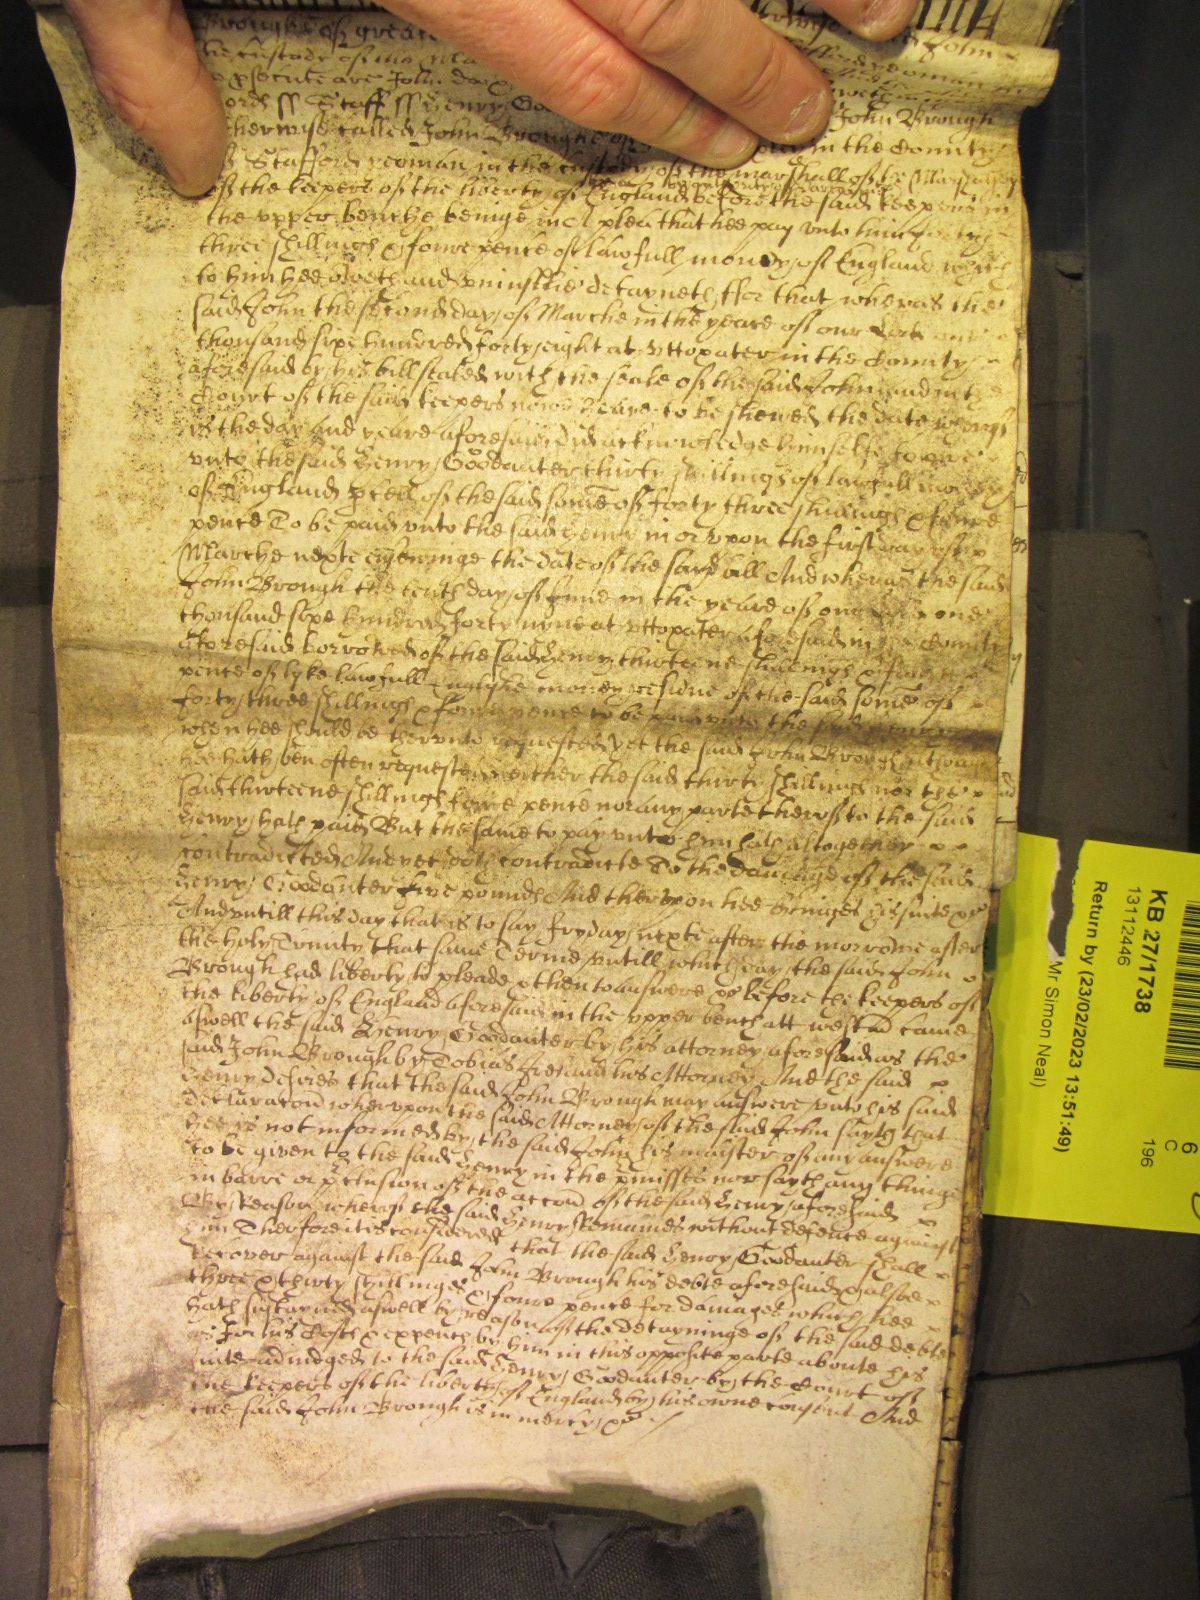 Brough of greate
the custody of the Ma
to psecute are John Doo
ord ss Staff ss Henry Go John Brough
herwise called John Broughe of in the County
of Stafford yeoman in the custody of the marshall of the Marshalsey
of the keepers of the liberty of England before the said keepers in
the upper benche beinge in A plea that hee pay unto him forty
three shillings & foure pence of lawfull money of England which
to him hee oweth and uniustlie detayneth ffor that wheras the
said John the second day of Marche in the yeare of our Lord one
thousand sixe hundred forty eight at Uttoxater in the County
aforesaid by his bill sealed with the seale of the said John and in the
Court of the said keepers nowe heare to be shewed the date wherof
is the day and yeare aforesaid did acknowledge himselfe to owe
unto the said Henry Goodanter thirty shillings of lawfull money
of England pcell of the said some of forty three shillings & foure
pence To be paid unto the said Henry in or upon the first day of
Marche nexte ensueinge the date of the sayd bill And wheras the said
John Brough the tenth day of June in the yeare of our Lord one
thousand sixe hundred forty nine at Uttoxater aforesaid in the County
aforesaid borrowed of the said Henry thirteene shillings & foure
pence of lyke lawfull Englishe money residue of the said some of
forty three shillings & foure pence to be paid unto the said Henry
when hee should be therunto requested yet the said John Brough although
hee hath ben often requested neither the said thirty shillings nor the
said thirteene shillings foure pence nor any parte therof to the said
Henry hath paid But the same to pay unto him hath altogether
contradicted And yet doth contradicte To the damage of the said
Henry Goodanter five pounds And therupon hee bringes his suite &c
And untill this day that is to say fryday nexte after the morrowe after
the holy Trinity that same Terme untill which day the said John
Brough had liberty to pleade & then to answere &c before the keepers of
the liberty of England aforesaid in the upper bench att Westm came
aswell the said Henry Goodanter by his attorney aforesaid as the
said John Brough by Tobias his Attorney And the said
Henry desires that the said John Brough may answere unto his said
declaracon wherupon the said Attorney of the said John sayth that
hee is not informed by the said John his maister of any answere
to be given to the said Henry in the pmisses nor sayth any thinge
in barre or pclusion of the accon of the said Henry aforesaid
By Reason wherof the said Henry Remaines without defence against
him Therfore it is considered that the said Henry Goodanter shall
Recover against the said John Brough his debte aforesaid & alsoe
three & thirty shillinges & foure pence for damages which hee
hath sustayned aswell by reason of the detayninge of the said debte
as for his Costs & expences by him in this opposite parte aboute his
suite adiudged to the said Henry Goodanter by the Court of
the keepers of the liberty of England by his owne consent And
the said John Brough is in mercy &c
KB 27/1738
13112446
Return by (23/02/2023 13:51:49)
Mr Simon Neal)
6
C
196